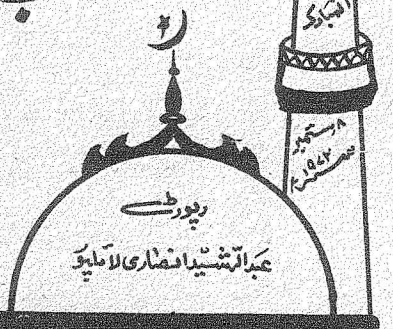 المبارک
۸ ستمبر
۱۹۷۲
رپورٹ
عبدالرشید انصاری لائلپور